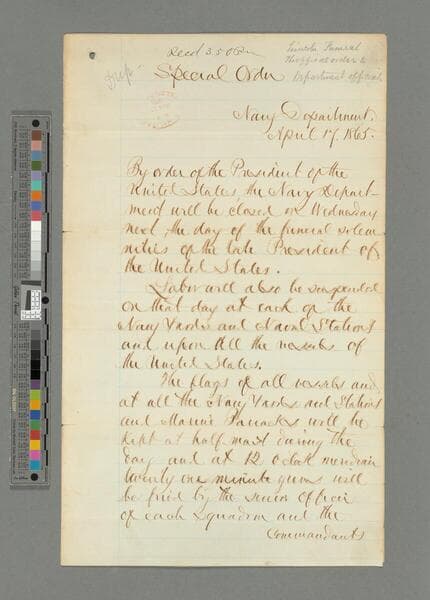 Recd 3.50 Pm
Lincoln Funeral
order to
Department officials
Special Order
Navy Department.
April 17, 1865.
By order of the President of the
United States, the Navy Depart-
ment will be closed on Wednesday
next, the day of the funeral solem
nities of the late President of
the United States.
Labor will also be suspended
on that day at each of the
Navy Yards and Naval Stations
and upon all the vessels of
the United States.
The flags of all vessels and
at all the Navy Yards and Stations
and Marine Barracks will be
kept at half mast during the
day and at 12 o'clock meridian
twenty one minute guns will
be fired by the senior officer
of each squadron and the
Commandants